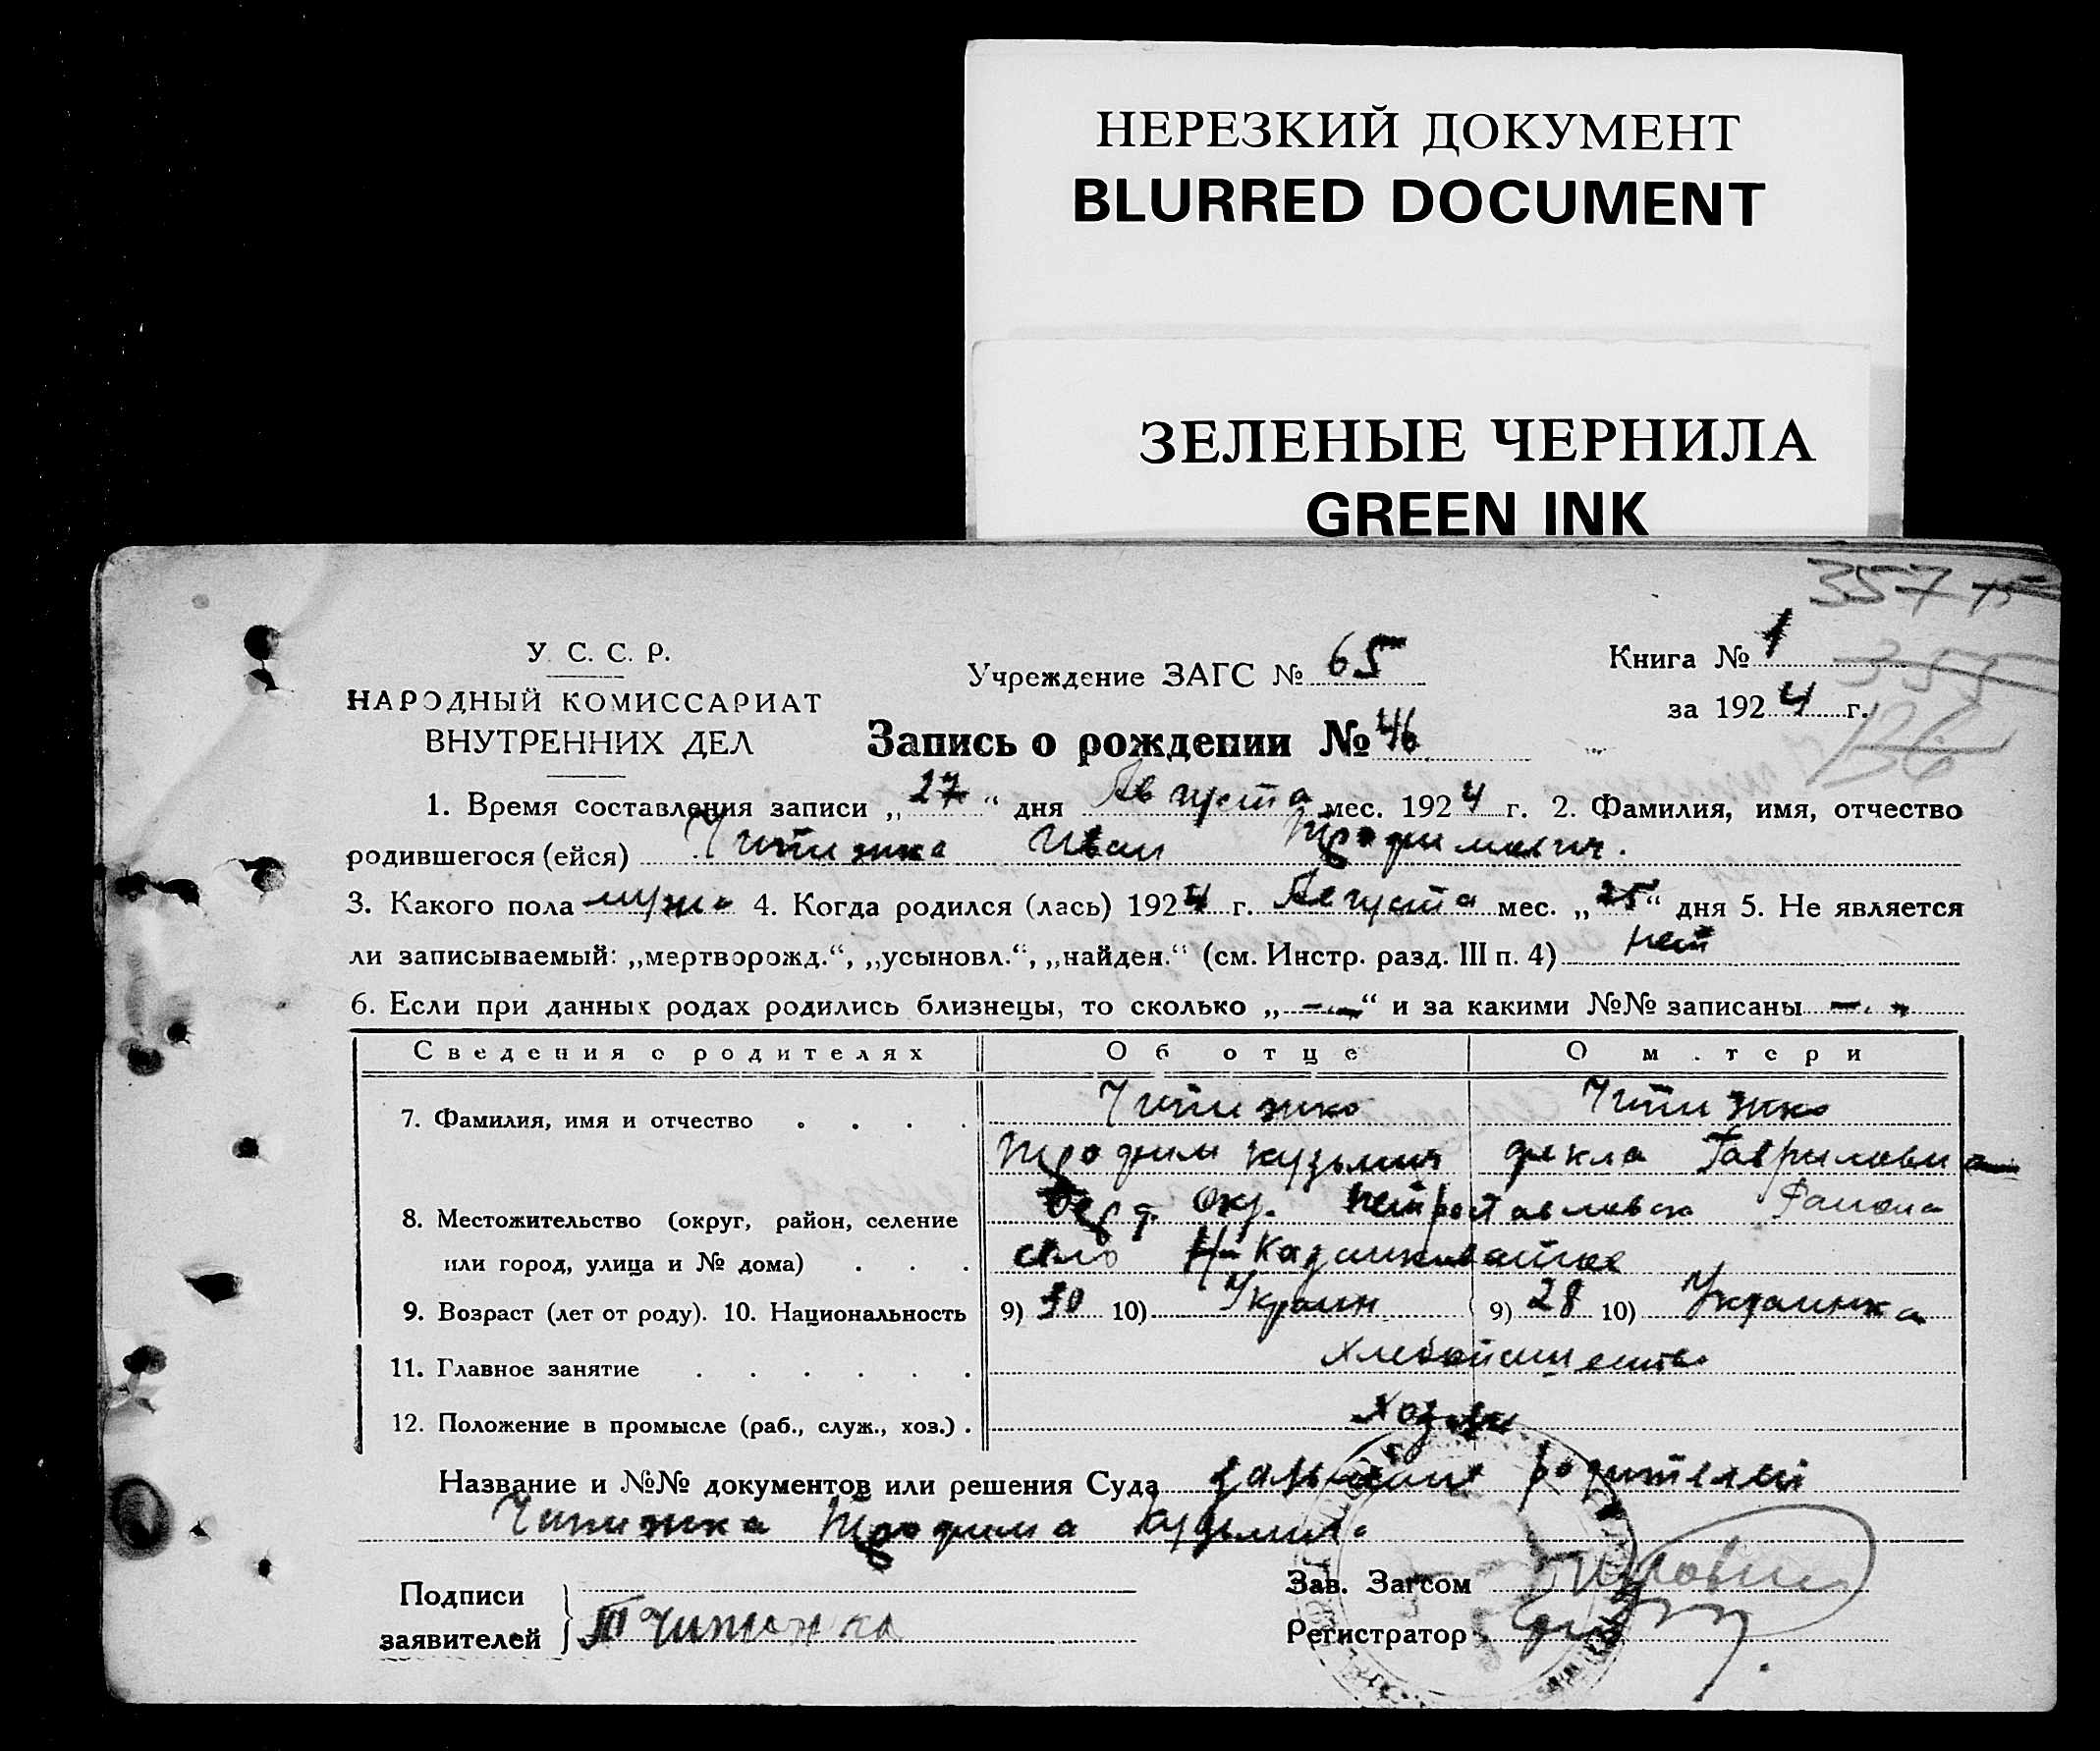 НЕРЕЗКИЙ ДОКУМЕНТ
BLURRED DOCUMENT
ЗЕЛЕНЫЕ ЧЕРНИЛА
GREEN INK
357
355
136
У. С. С. Р.
НАРОДНЫЙ КОМИССАРИАТ
ВНУТРЕННИХ ДЕЛ
Учреждение ЗАГС № 65
Книга № 1
за 1924 г.
Запись о рождении № 46
1. Время составления записи „27“ дня Августа мес. 1924 г. 2. Фамилия, имя, отчество
родившегося (ейся) Чипижко Иван Трофимович.
3. Какого пола муж. 4. Когда родился (лась) 1924 г. Августа мес. „25“ дня 5. Не является
ли записываемый: „мертворожд.“, „усыновл.“, „найден.“ (см. Инстр. разд. III п. 4) нет
6. Если при данных родах родились близнецы, то сколько „—“ и за какими №№ записаны —
Сведения о родителях Об отце О м.тери
7. Фамилия, имя и отчество Чипижко Чипижко
Трофим Кузьмич фекла Гавриловна
8. Местожительство (округ, район, селение окр. района
или город, улица и № дома) село
9. Возраст (лет от роду). 10. Национальность 9) 30 10) Украин 9) 28 10) Украинка
11. Главное занятие хлебопашество
12. Положение в промысле (раб., служ., хоз.) хозяин
Название и №№ документов или решения Суда родителей
Чипижка Трофима Кузьмича
Подписи
заявителей Т Чипижка
Зав. Загсом
Регистратор